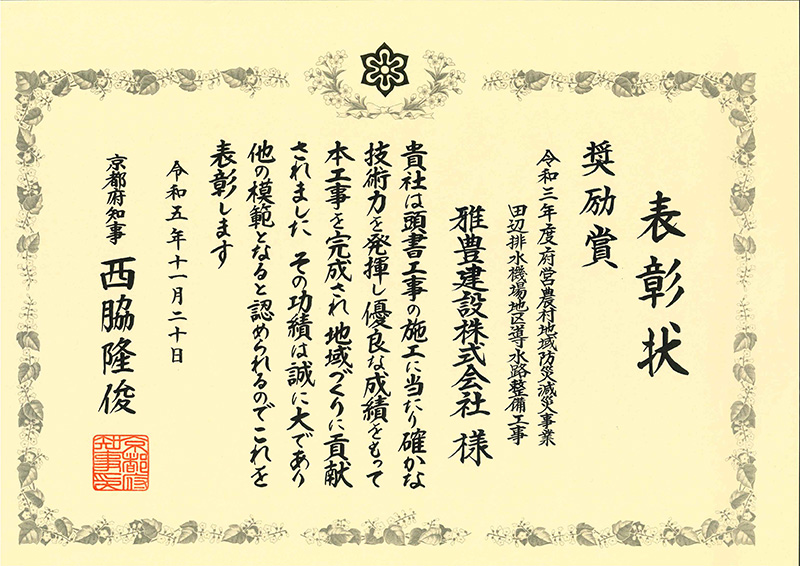 表彰状
奨励賞
令和三年度府営農村地域防災減災事業
田辺排水機場地区導水路整備工事
雅豊建設株式会社 様
貴社は頭書工事の施工に当たり確かな
技術力を発揮し優良な成績をもって
本工事を完成され地域づくりに貢献
されました その功績は誠に大であり
他の模範となると認められるのでこれを
表彰します
令和五年十一月二十日
京都府知事 西脇隆俊
京都府
知事印